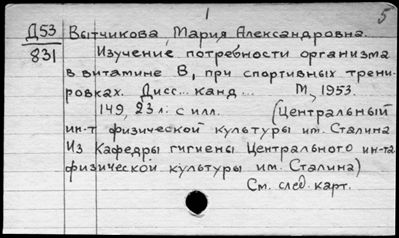 1
5
Д53 Вытчикова, Мария Александровна.
831 Изучение потребности организма
в витамине В₁ при спортивных трени-
ровках. Дисс... канд... М., 1953.
149, 23 л. с илл. (Центральный
ин-т физической культуры им. Сталина
Из Кафедры гигиены Центрального ин-та
физической культуры им. Сталина)
См. след. карт.